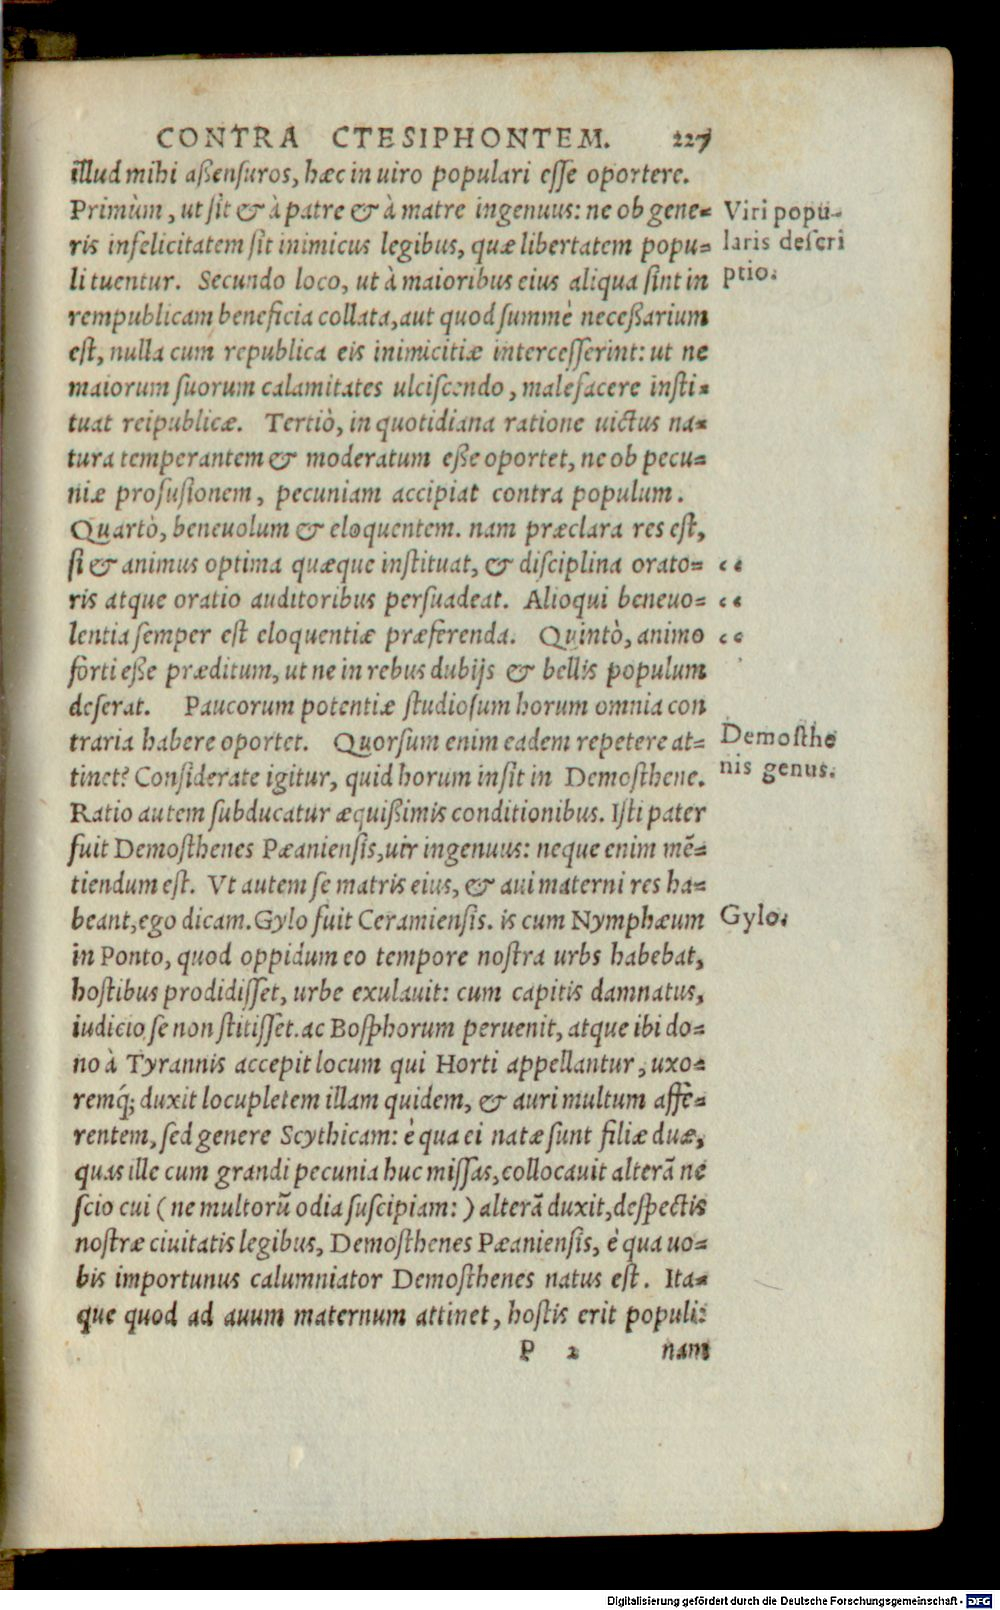 CONTRA CTESIPHONTEM. 227
illud mihi aßensuros, hæc in uiro populari esse oportere.
Primùm, ut sit & à patre & à matre ingenuus: ne ob gene=
ris infelicitatem sit inimicus legibus, quæ libertatem popu=
li tuentur. Secundo loco, ut à maioribus eius aliqua sint in
rempublicam beneficia collata, aut quod summè neceßarium
est, nulla cum republica eis inimicitiæ intercesserint: ut ne
maiorum suorum calamitates ulciscendo, malefacere insti=
tuat reipublicæ. Tertiò, in quotidiana ratione uictus na=
tura temperantem & moderatum eße oportet, ne ob pecu=
niæ profusionem, pecuniam accipiat contra populum.
Quartò, beneuolum & eloquentem. nam præclara res est,
si & animus optima quæque instituat, & disciplina orato=
ris atque oratio auditoribus persuadeat. Alioqui beneuo=
lentia semper est eloquentiæ præferenda. Quintò, animo
forti eße præditum, ut ne in rebus dubijs & bellis populum
deserat. Paucorum potentiæ studiosum horum omnia con
traria habere oportet. Quorsum enim eadem repetere at=
tinet? Considerate igitur, quid horum insit in Demosthene.
Ratio autem subducatur æquißimis conditionibus. Isti pater
fuit Demosthenes Pæaniensis, uir ingenuus: neque enim mē=
tiendum est. Vt autem se matris eius, & aui materni res ha=
beant, ego dicam. Gylo fuit Ceramiensis. is cum Nymphæum
in Ponto, quod oppidum eo tempore nostra urbs habebat,
hostibus prodidisset, urbe exulauit: cum capitis damnatus,
iudicio se non stitisset. ac Bosphorum peruenit, atque ibi do=
no à Tyrannis accepit locum qui Horti appellantur, uxo=
remq́; duxit locupletem illam quidem, & auri multum affe=
rentem, sed genere Scythicam: è qua ei natæ sunt filiæ duæ,
quas ille cum grandi pecunia huc missas, collocauit alterā ne
scio cui (ne multorū odia suscipiam:) alterā duxit, despectis
nostræ ciuitatis legibus, Demosthenes Pæaniensis, è qua uo=
bis importunus calumniator Demosthenes natus est. Ita=
que quod ad auum maternum attinet, hostis erit populi:
P 2 nam
Viri popu-
laris descri
ptio.
‹ ‹
‹ ‹
‹ ‹
Demosthe
nis genus.
Gylo.
Digitalisierung gefördert durch die Deutsche Forschungsgemeinschaft - DFG